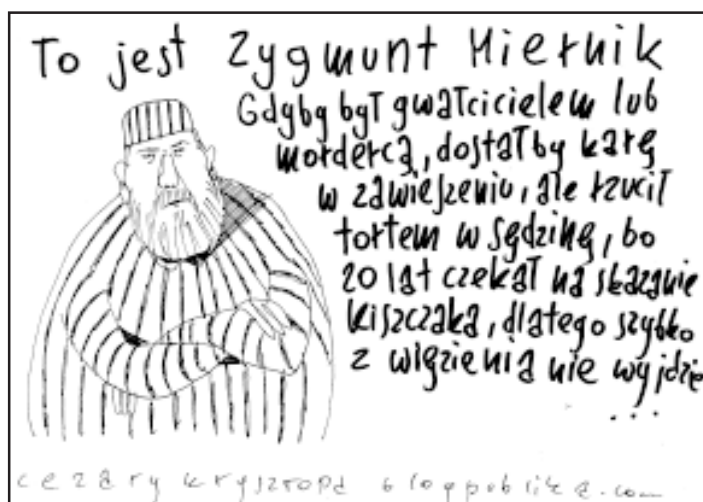 To jest Zygmunt Miernik
Gdyby był gwałcicielem lub
mordercą, dostałby karę
w zawieszeniu, ale rzucił
tortem w sędzinę, bo
20 lat czekał na skazanie
Kiszczaka, dlatego szybko
z więzienia nie wyjdzie
...
cezary krysztopa blogpublika.com